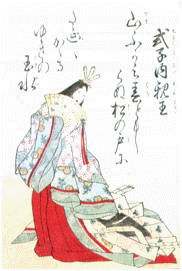 式子内親王
山ふかみ春とも
しらぬ松の戸に
たえ〴〵
かゝる
ゆきの
玉水